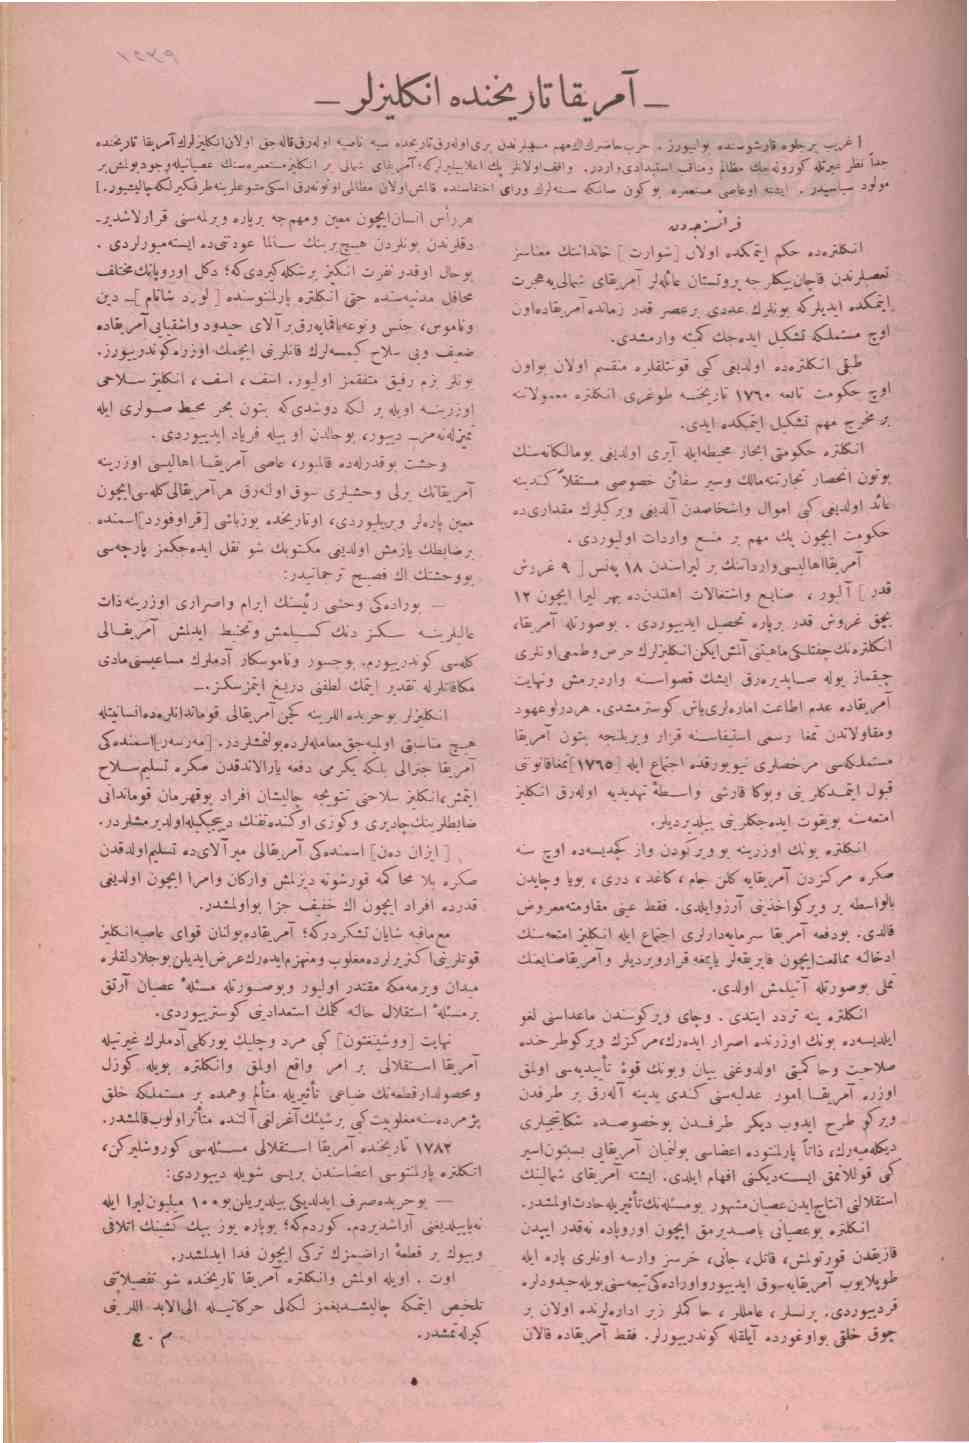 ۲۹۳۹
— آمریقا تاریخنده انکلیزلر —
[ غریب بر جلوه قارشوسنده بولنیورز . حرب حاضرك اك مهم سببلرندن بری اوله رق تاریخده سیه ناصیه اوله رق قاله جق اولان انکلیزلرك آمریقا تاریخنده
جداً نظر عبرتله کوروله جك مظالم ومناقب استبدادی واردر. واقف اولانلر پك اعلا بیلیرلرکه؛ آمریقای شمالی بر انکلیز مستعمره سنك عصیانیله وجود بولمش بر
مولود سیاسیدر . ایشته او عاصی مستعمره بوکون سانکه سنه لرك ورای اختفاسنده قالمش اولان مظالمی اونوته رق اسکی متبوعلرینه طرفکیرلکه چالیشیور.]
فرانسزجه دن
انکلتره ده حکم ایتمکده اولان [ستوارت] خانداننك معناسز
تعصبلرندن قاچان بیکلرجه پروتستان عائله لر آمریقای شمالی یه هجرت
ایتمکده ایدیلرکه بونلرك عددی بر عصر قدر زمانده آمریقاده اون
اوچ مستملکه تشکیل ایده جك کمیته وارمشدی.
طبقی انکلتره ده اولدیغی کبی قونتلقلره منقسم اولان بو اون
اوچ حکومت تابعه ۱۷٦۰ تاریخنه طوغری انکلتره معمولاتنه
بر مخرج مهم تشکیل ایتمکده ایدی.
انکلتره حکومتی ابحار محیطه ایله آیری اولدیغی بو مالکانه سنك
بوتون انحصار تجارتنه مالك وسیر سفائن خصوصی مستقلاً کندینه
عائد اولدیغی کبی اموال واشخاصدن آلدیغی ویرکیلرك مقداری ده
حکومت ایچون پك مهم بر منبع واردات اولیوردی .
آمریقا اهالیسی وارداتنك بر لیراسندن ۱۸ پنس [ ۹ غروش
قدر ] آلیور ، صنایع واشتغالات اهلندن ده بهر لیرا ایچون ۱۲
بچق غروش قدر بر پاره تحصیل ایدییوردی . بوصورتله آمریقا،
انکلتره نك چفتلکی ماهیتنی آلمش ایکن انکلیزلرك حرص وطمعی اونلری
چیقماز یوله صاپدیره رق ایشك قصواسنه واردیرمش ونهایت
آمریقاده عدم اطاعت اماره لری باش کوسترمشدی. هر درلو عهود
ومقاولاتدن تمغا رسمی استیفاسنه قرار ویریلنجه بتون آمریقا
مستملکه سی مرخصلری نیویورقده اجتماع ایله [۱۷٦٥] تمغا قانونی
قبول ایتمدکلرینی وبوکا قارشی واسطهٔ تهدیدیه اوله رق انکلیز
امتعه سنه بویقوت ایده جکلرینی بیلدیردیلر.
انکلتره بونك اوزرینه بو ویرکودن واز کچدیسه ده اوچ سنه
صکره مرکزدن آمریقایه کلن جام ، کاغد ، دری ، بویا وچایدن
بالواسطه بر ویرکو اخذینی آرزو ایلدی. فقط عینی مقاومته معروض
قالدی. بو دفعه آمریقا سرمایه دارلری اجتماع ایله انکلیز امتعه سنك
ادخالنه ممانعت ایچون فابریقه لر یاپمغه قرار ویردیلر وآمریقا صنایعنك
تملی بوصورتله آتیلمش اولدی.
انکلتره ینه تردد ایتدی . وچای ویرکوسندن ماعداسنی لغو
ایلدیسه ده بونك اوزرنده اصرار ایده رك، مرکزك ویرکو طرحنده
صلاحیت وحاکمیتی اولدوغنی بیان وبونك قوهٔ تأییدیه سی اولمق
اوزره آمریقا امور عدلیه سنی کندی یدینه آله رق بر طرفدن
ویرکو طرح ایدوب دیکر طرفدن بوخصوصده شکایتجیلری
دیکله میه رك، ذاتاً پارلمنتوده اعضاسی بولنمیان آمریقایی بسبتون اسیر
کبی قوللانمق ایسته دیکنی افهام ایلدی. ایشته آمریقای شمالینك
استقلالنی انتاج ایدن عصیان مشهور بو مسئله نك تأثیریله حادث اولمشدر.
انکلتره بو عصیانی باصدیرمق ایچون اوروپاده نه قدر ایپدن
قازیقدن قورتولمش، قاتل، جانی، خرسز وارسه اونلری پاره ایله
طوپلایوب آمریقایه سوق ایدییور واوراده کی تبعه سنی بویله حیدودلره
قیردیریوردی. پرنسلر، عامللر، حاکملر زیر اداره لرنده اولان بر
چوق خلقی بو اوغورده آیلقله کوندرییورلر. فقط آمریقاده قالان
هر رأس انسان ایچون معین ومهمجه بر پاره ویرلمه سنی قرارلاشدیر-
دقلرندن بونلردن هیچ برینك سالماً عودتنی ده ایسته میورلردی .
بو حال او قدر نفرت انکیز بر شکله کیردی که؛ دکل اوروپانك مختلف
محافل مدنیه سنده حتی انکلتره پارلمنتوسنده [لورد شاتام] — دین
وناموس، جنس ونوعه باقمایه رق بر آلای حیدود واشقیایی آمریقاده
ضعیف وبی سلاح کیمسه لرك قانلرینی ایچمك اوزره کوندرییورز.
بونلر بزم رفیق متفقمز اولیور. اسف، اسف، انکلیز سلاحی
اوزرینه اویله بر لکه دوشدی که بتون بحر محیط صولری ایله
تمیزله نه مز — دییور، بو حالدن او بیله فریاد ایدییوردی .
وحشت بو قدرله ده قالمیور، عاصی آمریقا اهالیسی اوزرینه
آمریقانك یرلی وحشیلری سوق اولنه رق هر آمریقالی کله سی ایچون
معین پاره لر ویریلیوردی، او تاریخده یوزباشی [قراوفورد] اسمنده
بر ضابطك یازمش اولدیغی مکتوبك شو نقل ایده جکمز پارچه سی
بو وحشتك اك فصیح ترجمانیدر:
— بوراده کی وحشی رئیسنك ابرام واصراری اوزرینه ذات
عالیلرینه سکز دنك کسیلمش وتحنیط ایدلمش آمریقالی
کله سی کوندرییورم. بو جسور وناموسکار آدملرك مساعیسنی مادی
مکافاتلرله تقدیر ایتمك لطفنی دریغ ایتمزسکز.—
انکلیزلر بو حربده اللرینه کچن آمریقالی قوماندانلره ده انسانیتله
هیچ مناسبتی اولمیه جق معامله لرده بولنمشلردر. [مه رسه ر] اسمنده کی
آمریقا جنرالی بلکه یکرمی دفعه یارالاندقدن صکره تسلیم سلاح
ایتمش، انکلیز سلاحنی تثویجه چالیشان افراد بو قهرمان قوماندانی
ضابطلرینك چادیری وکوزی اوکنده تفنك دیپجیکیله اولدیرمشلردر.
[ ایزان ده ن] اسمنده کی آمریقالی میرآلای ده تسلیم اولدقدن
صکره بلا محاکمه قورشونه دیزلمش وارکان وامرا ایچون اولدیغی
قدرده افراد ایچون اك خفیف جزا بو اولمشدر.
مع مافیه شایان تشکردرکه؛ آمریقاده بولنان قوای عاصیه انکلیز
قوتلرینی اکثریلرده مغلوب ومنهزم ایده رك عرض ایدیلن بو جلادلقلره
میدان ویرمه مکه مقتدر اولیور وبوصورتله مسئلهٔ عصیان آرتق
بر مسئلهٔ استقلال حالنه کلمك استعدادینی کوستریبوردی.
نهایت [ووشینغتون] کبی مرد وچلیك یورکلی آدملرك غیرتیله
آمریقا استقلالی بر امر واقع اولمق وانکلتره بویله کوزل
ومحصولدار قطعه نك ضیاعی تأثیریله متألم وهمده بر مستملکه خلق
پژمرده سنه مغلوبیت کبی بر شیئك آغرلغی آلتنده متأثر اولوب قالمشدر.
۱۷۸۳ تاریخنده آمریقا استقلالی مسئله سی کوروشلیرکن،
انکلتره پارلمنتوسی اعضاسندن بریسی شویله دییوردی:
— بو حربده صرف ایدلدیکی بیلدیریلن بو ۱۰۰ میلیون لیرا ایله
نه یاپیلدیغنی آراشدیردم. کوردم که؛ بو پاره یوز بیك کشینك اتلافی
وبیوك بر قطعهٔ اراضمزك ترکی ایچون فدا ایدلمشدر.
اوت . اویله اولمش وانکلتره آمریقا تاریخنده شو تفصیلاتنی
تلخیص ایتمکه چالیشدیغمز لکه لی حرکاتیله الی الابد اللرینی
کیرله تمشدر.
م . ج
٥